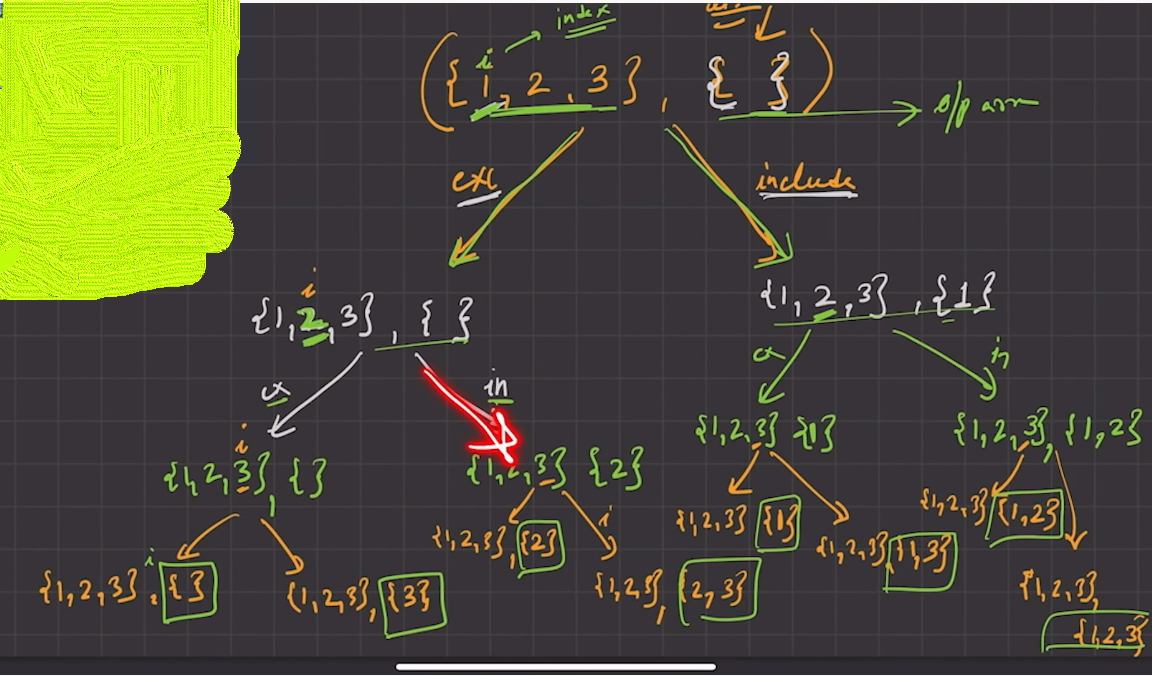 i → index
({1, 2, 3}, { }) → o/p arr
exc include
i
{1, 2, 3}, { } {1, 2, 3}, {1}
ex in ex in
i
{1, 2, 3}, { } {1, 2, 3} {2} {1, 2, 3} {1} {1, 2, 3}, {1, 2}
{1, 2, 3}, {2} i {1, 2, 3} {1} {1, 2, 3}, {1, 3} {1, 2, 3} {1, 2}
i
{1, 2, 3}, { } {1, 2, 3}, {3} {1, 2, 3}, {2, 3} {1, 2, 3},
{1, 2, 3}